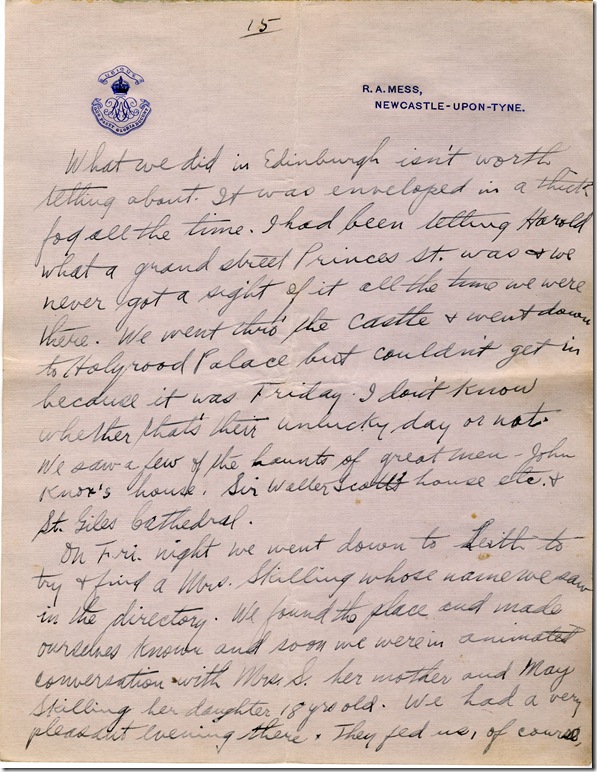 15
UBIQUE
R.A. MESS,
NEWCASTLE-UPON-TYNE.
What we did in Edinburgh isn't worth
telling about. It was enveloped in a thick
fog all the time. I had been telling Harold
what a grand street Princes St. was & we
never got a sight of it all the time we were
there. We went thro' the Castle & went down
to Holyrood Palace but couldn't get in
because it was Friday. I don't know
whether that's their unlucky day or not.
We saw a few of the haunts of great men - John
Knox's house, Sir Walter Scott's house etc. &
St. Giles Cathedral.
On Fri. night we went down to Leith to
try & find a Mrs. Skilling whose name we saw
in the directory. We found the place and made
ourselves known and soon we were in animated
conversation with Mrs. S. her mother and May
Skilling her daughter 18 yrs old. We had a very
pleasant evening there. They fed us, of course,